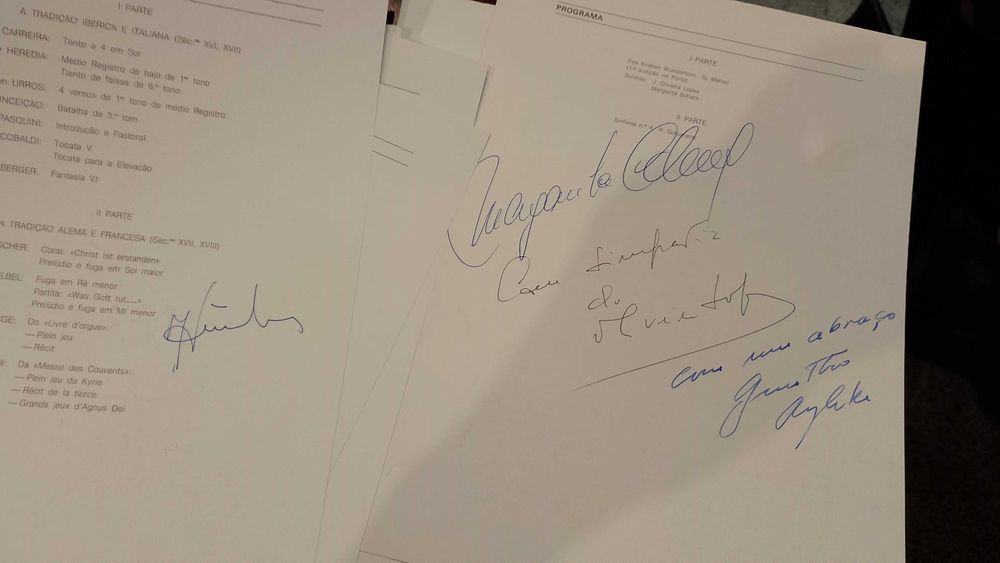 I PARTE
A TRADIÇÃO IBÉRICA E ITALIANA (Séc.ᵒˢ XVI, XVII)
CARREIRA: Tento a 4 em Sol
HEREDIA: Medio Registro de bajo de 1º tono
Tiento de falsas de 6.º tono
URROS: 4 versos de 1º tono de médio Registro
ONCEIÇÃO: Batalha de 5.º tom
PASQUINI: Introdução e Pastoral
COBALDI: Tocata V
Tocata para a Elevação
BERGER: Fantasia VI
II PARTE
A TRADIÇÃO ALEMÃ E FRANCESA (Séc.ᵒˢ XVII, XVIII)
SCHER: Coral: «Christ ist erstanden»
Prelúdio e fuga em Sol maior
LBEL: Fuga em Ré menor
Partita: «Was Gott tut....»
Prelúdio e fuga em Mi menor
GE: Do «Livre d'orgue»:
— Plein jeu
— Récit
N: Da «Messe des Couvents»:
— Plein jeu du Kyrie
— Récit de la tierce
— Grands jeux d'Agnus Dei
PROGRAMA
I PARTE
Des Knaben Wunderhorn G. Mahler
(1ª audição no Porto)
Solistas: J. Oliveira Lopes
Margarita Schack
II PARTE
Sinfonia n.º 4 R.
Margarita
Com simpatia
do
com um abraço